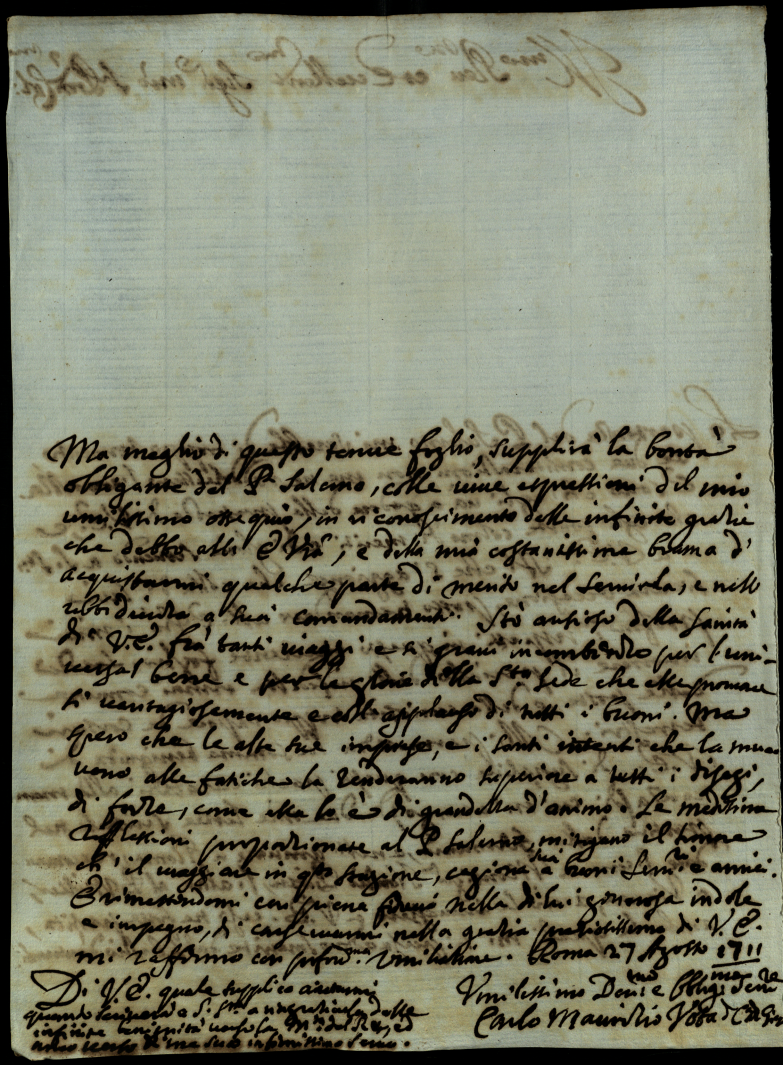 Ma meglio di questo tenue foglio, supplirà la bontà
obligante del P. Salerno, colle vive espressioni del mio
umilissimo ossequio, in riconoscimento delle infinite grazie
che debbo all' E. V.ra, e della mia costantissima brama d'
acquistarmi qualche parte di merito nel servirla, e nell'
ubbidirla a suoi comandamenti. Stò ansioso della sanità
di V.E. frà tanti viaggi e sì gravi incombenze per l'uni-
versal bene e per la gloria della S.ta Sede che ella promuove
sì vantagiosamente e coll' applauso di tutti i buoni. Ma
spero che le alte sue imprese, e i santi intenti che la muo-
vono alle fatiche la renderanno superiore a tutti i disagi,
di forze, come ella lo è di grandezza d'animo. Le medesime
riflessioni proporzionate al P. Salerno, mitigano il timore
ch' il viaggiare in q.ta stagione, cagiona a suoi buoni Servi e amici.
E rimettendomi con piena fiducia nella di lui generosa indole
e impegno, di conservarmi nella grazia pretiosissima di V.E.
mi raffermo con profond.ma umiliazione. Roma 27 Agosto 1711
Di V.E. quale supplico aiutarmi
quando scriverà a S. S.tà a ringratiarla delle
infinite benignità verso la M.tà del Rè, ed
anco verso di me suo infimissimo servo.
Umilissimo Dev.mo e Obblig.mo Serv.re
Carlo Maurizio Vota d C di Giesù